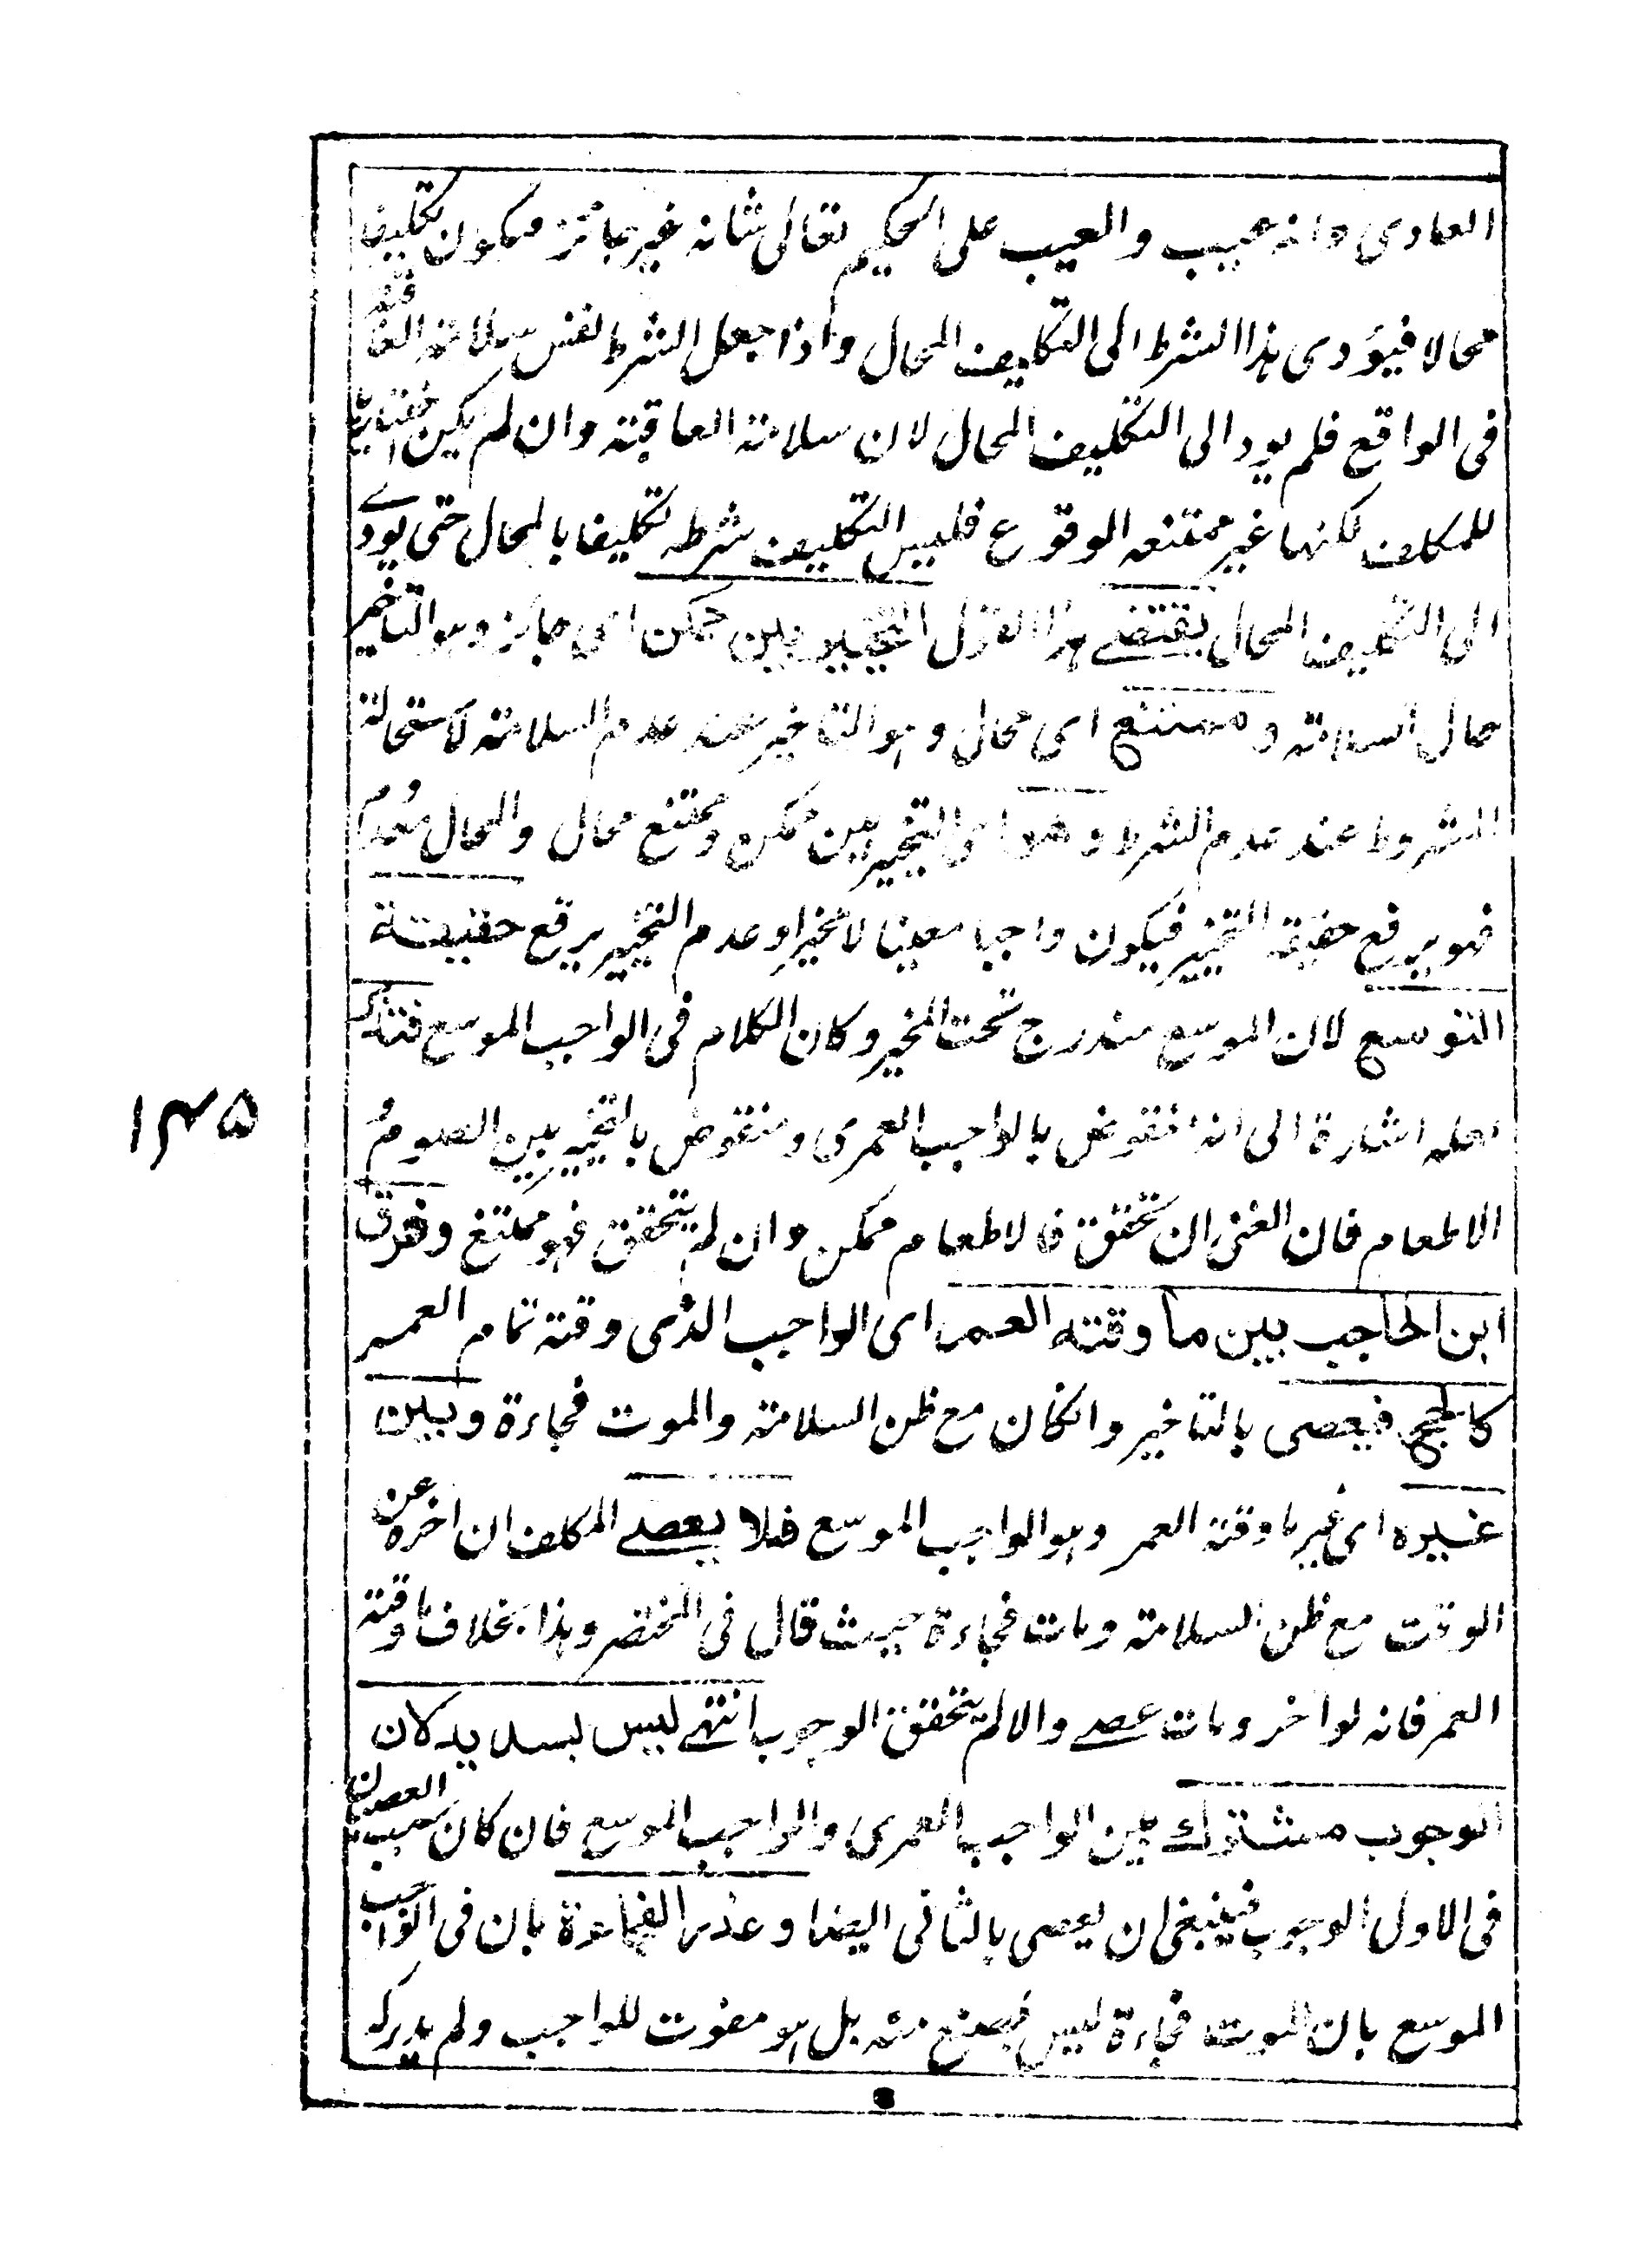 العادى وانه عيب والعيب على الحكيم تعالى شانه غير جائز فيكون تكليفا
محالا فيؤدى هذا الشرط الى التكليف المحال واذا جعل الشرط نفس سلامة العاقبة
فى الواقع فلم يود الى التكليف المحال لان سلامة العاقبة وان لم يكن اختيارها
للمكلف لكنها غير ممتنعه الوقوع فليس التكليف بشرطه تكليفا بالمحال حتى يودے
الى التكليف المحال يقتضے هذا القول التخيير بين ممكن اى جائز وهو التاخير
حال السلامة وممتنع اى محال وهو التاخير عند عدم السلامة لاستحالة
المشروط عند عدم الشرط وهو اى التخيير بين ممكن وممتنع محال والمحال معدوم
فهو يرفع حقيقة التخيير فيكون واجبا معينا لا مخيرا وعدم التخيير يرفع حقيقة
التوسع لان الموسع مندرج تحت المخير وكان الكلام فى الواجب الموسع فتدبر
لعله اشارة الى انه منقوض بالواجب العمرى ومنقوض بالتخيير بين الصوم و
الاطعام فان الغنى ان تحقق فالاطعام ممكن وان لم يتحقق فهو ممتنع وفرق
ابن الحاجب بين ما وقته العمر اى الواجب الذى وقته تمام العمر
كالحج فيعصى بالتاخير وانكان مع ظن السلامة والموت فجاءة وبين
غيره اى غير ما وقته العمر وهو الواجب الموسع فلا يعصے المكلف ان اخره عن
الوقت مع ظن السلامة ومات فجاءة حيث قال فى المختصر وهذا بخلاف ما وقته
العمر فانه لو اخر ومات عصے والا لم يتحقق الوجوب انتهے ليس بسديد لان
الوجوب مشترك بين الواجب العمرى والواجب الموسع فان كان سبب العصيان
فى الاول الوجوب فينبغى ان يعصى بالثانى ايضا وعذر الفجاءة بان فى الواجب
الموسع بان الموت فجاءة ليس بصنع منه بل هو مفوت للواجب ولم يدركه
١٣٥